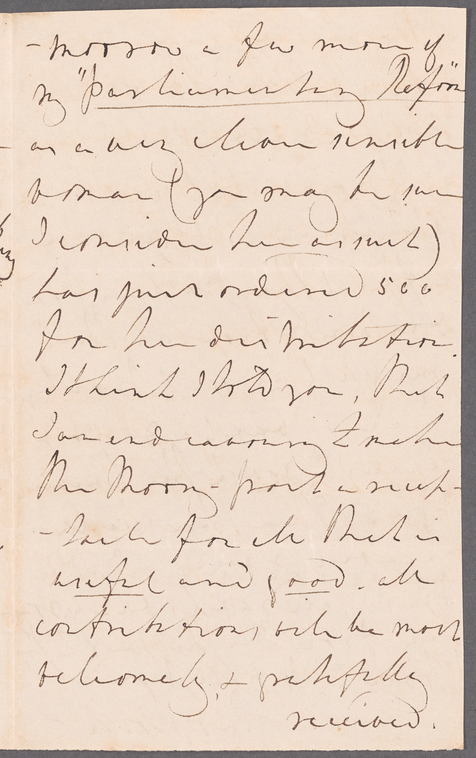 -morrow a few more of
my "Parliamentary Reform"
as a very clever sensible
woman (you may be sure
I consider her as such)
has just ordered 500
for her distribution.
I think I told you, that
I am endeavouring to make
the Moong-post a recep-
-tacle for all that is
useful and good. all
contributions will be most
welcomely, & gratefully
received.